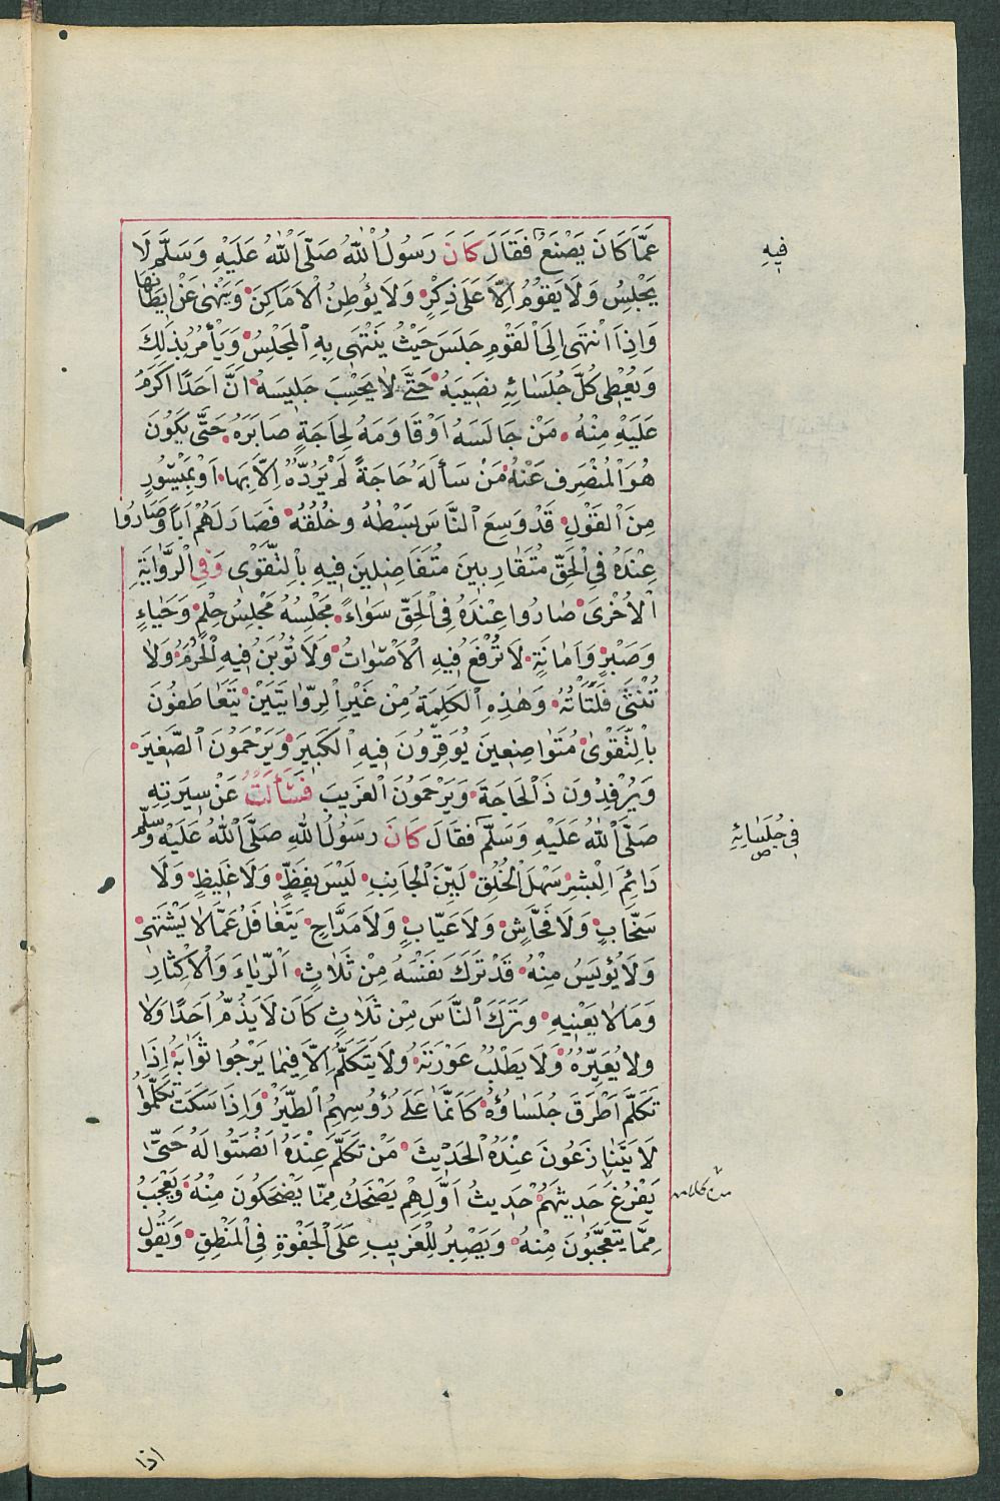 عَمَّا كَانَ يَصْنَعُ فَقَالَ كَانَ رَسُولُ اللّٰهِ صَلَّى اللّٰهُ عَلَيْهِ وَسَلَّمَ لَا
فِيهِ
يَجْلِسُ وَلَا يَقُوْمُ اِلَّا عَلَى ذِكْرٍ وَلَا يُوْطِنُ الْاَمَاكِنَ وَيَنْهٰى عَنْ اِيطَانِهَا
وَاِذَا انْتَهَى اِلَى الْقَوْمِ جَلَسَ حَيْثُ يَنْتَهِى بِهِ الْمَجْلِسُ وَيَأْمُرُ بِذٰلِكَ
وَيُعْطِى كُلَّ جُلَسَائِهِ نَصِيبَهُ حَتَّى لَا يَحْسِبَ جَلِيسَهُ اَنَّ اَحَدًا اَكْرَمُ
عَلَيْهِ مِنْهُ مَنْ جَالَسَهُ اَوْ قَاوَمَهُ لِحَاجَةٍ صَابَرَهُ حَتَّى يَكُوْنَ
هُوَ الْمُنْصَرِفَ عَنْهُ مَنْ سَأَلَهُ حَاجَةً لَمْ يَرُدَّهُ اِلَّا بِهَا اَوْ بِمَيْسُورٍ
مِنَ الْقَوْلِ قَدْ وَسِعَ النَّاسَ بَسْطُهُ وخُلُقُهُ فَصَارَ لَهُمْ اَبًا وَصَارُوا
عِنْدَهُ فِي الْحَقِّ مُتَقَارِبِينَ مُتَفَاضِلِينَ فِيهِ بِالتَّقْوٰى وَفِي الرِّوَايَةِ
الْاُخْرٰى صَارُوا عِنْدَهُ فِي الْحَقِّ سَوَاءً مَجْلِسُهُ مَجْلِسُ حِلْمٍ وَحَيَاءٍ
وَصَبْرٍ وَاَمَانَةٍ لَا تُرْفَعُ فِيهِ الْاَصْوَاتُ وَلَا تُؤْبَنُ فِيهِ الْحُرُمُ وَلَا
تُنْثَى فَلَتَاتُهُ وَهٰذِهِ الْكَلِمَةُ مِنْ غَيْرِ الرِّوَايَتَيْنِ يَتَعَاطَفُونَ
بِالتَّقْوٰى مُتَوَاضِعِينَ يُوَقِّرُونَ فِيهِ الْكَبِيرَ وَيَرْحَمُونَ الصَّغِيرَ
وَيُرْفِدُونَ ذَا الْحَاجَةِ وَيَرْحَمُونَ الْغَرِيبَ فَسَأَلْتُ عَنْ سِيرَتِهِ
صَلَّى اللّٰهُ عَلَيْهِ وَسَلَّمَ فَقَالَ كَانَ رَسُولُ اللّٰهِ صَلَّى اللّٰهُ عَلَيْهِ وَسَلَّمَ
فِي جُلَسَائِهِ ص
دَائِمَ الْبِشْرِ سَهْلَ الْخُلُقِ لَيِّنَ الْجَانِبِ لَيْسَ بِفَظٍّ وَلَا غَلِيظٍ وَلَا
سَخَّابٍ وَلَا فَحَّاشٍ وَلَا عَيَّابٍ وَلَا مَدَّاحٍ يَتَغَافَلُ عَمَّا لَا يَشْتَهِى
وَلَا يُؤْيَسُ مِنْهُ قَدْ تَرَكَ نَفْسَهُ مِنْ ثَلَاثٍ الرِّيَاءَ وَالْاِكْثَارِ
وَمَا لَا يَعْنِيهِ وَتَرَكَ النَّاسَ مِنْ ثَلَاثٍ كَانَ لَا يَذُمُّ اَحَدًا وَلَا
ولَا يُعَيِّرُهُ وَلَا يَطْلُبُ عَوْرَتَهُ وَلَا يَتَكَلَّمُ اِلَّا فِيمَا يَرْجُوا ثَوَابَهُ اِذَا
تَكَلَّمَ اَطْرَقَ جُلَسَاؤُهُ كَاَنَّمَا عَلَى رُؤُوسِهِمُ الطَّيْرُ وَاِذَا سَكَتَ تَكَلَّمُوا
لَا يَتَنَازَعُونَ عِنْدَهُ الْحَدِيثَ مَنْ تَكَلَّمَ عِنْدَهُ اَنْصَتُوا لَهُ حَتَّى
يَفْرُغَ حَدِيثُهُمْ حَدِيثُ اَوَّلِهِمْ يَضْحَكُ مِمَّا يَضْحَكُونَ مِنْهُ وَيَعْجَبُ
مِمَّا يَتَعَجَّبُونَ مِنْهُ وَيَصْبِرُ لِلْغَرِيبِ عَلَى الْجَفْوَةِ فِي الْمَنْطِقِ وَيَقُولُ
اذا